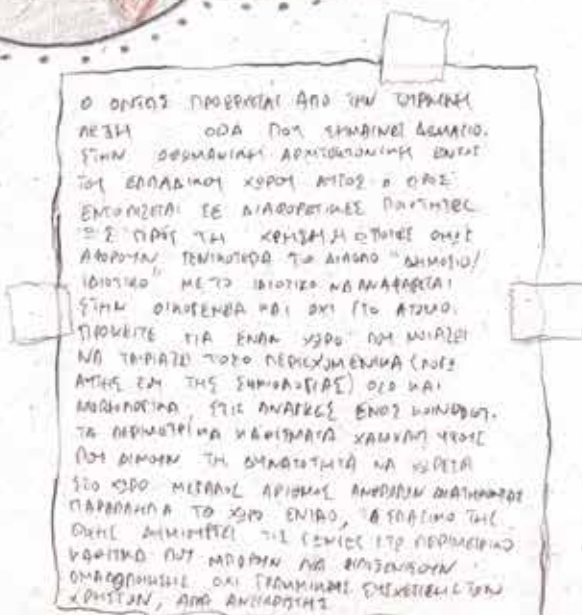 Ο ΟΝΤΑΣ ΠΡΟΕΡΧΕΤΑΙ ΑΠΟ ΤΗΝ ΤΟΥΡΚΙΚΗ
ΛΕΞΗ ODA ΠΟΥ ΣΗΜΑΙΝΕΙ ΔΩΜΑΤΙΟ.
ΣΤΗΝ ΟΘΩΜΑΝΙΚΗ ΑΡΧΙΤΕΚΤΟΝΙΚΗ ΕΝΤΟΣ
ΤΟΥ ΕΛΛΑΔΙΚΟΥ ΧΩΡΟΥ ΑΥΤΟΣ Ο ΟΡΟΣ
ΕΝΤΟΠΙΖΕΤΑΙ ΣΕ ΔΙΑΦΟΡΕΤΙΚΕΣ ΠΟΙΟΤΗΤΕΣ
ΩΣ ΠΡΟΣ ΤΗ ΧΡΗΣΗ ΟΙ ΟΠΟΙΕΣ ΟΜΩΣ
ΑΦΟΡΟΥΝ ΓΕΝΙΚΟΤΕΡΑ ΤΟ ΔΙΠΟΛΟ "ΔΗΜΟΣΙΟ/
ΙΔΙΩΤΙΚΟ" ΜΕ ΤΟ ΙΔΙΩΤΙΚΟ ΝΑ ΑΝΑΦΕΡΕΤΑΙ
ΣΤΗΝ ΟΙΚΟΓΕΝΕΙΑ ΚΑΙ ΟΧΙ ΣΤΟ ΑΤΟΜΟ.
ΠΡΟΚΕΙΤΕ ΓΙΑ ΕΝΑΝ ΧΩΡΟ ΠΟΥ ΜΟΙΑΖΕΙ
ΝΑ ΤΑΙΡΙΑΖΕΙ ΤΟΣΟ ΠΕΡΙΕΧΟΜΕΝΙΚΑ (ΛΟΓΩ
ΑΥΤΗΣ ΤΗΣ ΣΗΜΕΙΟΛΟΓΙΑΣ) ΟΣΟ ΚΑΙ
ΜΟΡΦΟΛΟΓΙΚΑ, ΣΤΙΣ ΑΝΑΓΚΕΣ ΕΝΟΣ ΚΟΙΝΟΒΙΟΥ.
ΤΑ ΠΕΡΙΜΕΤΡΙΚΑ ΚΑΘΙΣΜΑΤΑ ΧΑΜΗΛΟΥ ΥΨΟΥΣ
ΠΟΥ ΔΙΝΟΥΝ ΤΗ ΔΥΝΑΤΟΤΗΤΑ ΝΑ ΧΩΡΕΣΕΙ
ΣΤΟ ΧΩΡΟ ΜΕΓΑΛΟΣ ΑΡΙΘΜΟΣ ΑΝΘΡΩΠΩΝ ΔΙΑΤΗΡΩΝΤΑΣ
ΠΑΡΑΛΛΗΛΑ ΤΟ ΧΩΡΟ ΕΝΙΑΙΟ, ΤΟ ΣΠΑΣΙΜΟ ΤΗΣ
ΔΗΜΙΟΥΡΓΕΙ ΤΙΣ ΓΩΝΙΕΣ ΣΤΟ ΠΕΡΙΜΕΤΡΙΚΟ
ΚΑΘΙΣΤΙΚΟ ΠΟΥ ΜΠΟΡΟΥΝ ΝΑ ΦΙΛΟΞΕΝΗΣΟΥΝ
ΟΜΑΔΟΠΟΙΗΣΕΙΣ ΟΧΙ ΓΡΑΜΜΙΚΗΣ ΣΥΣΧΕΤΙΣΗΣ ΤΩΝ
ΧΡΗΣΤΩΝ, ΑΛΛΑ